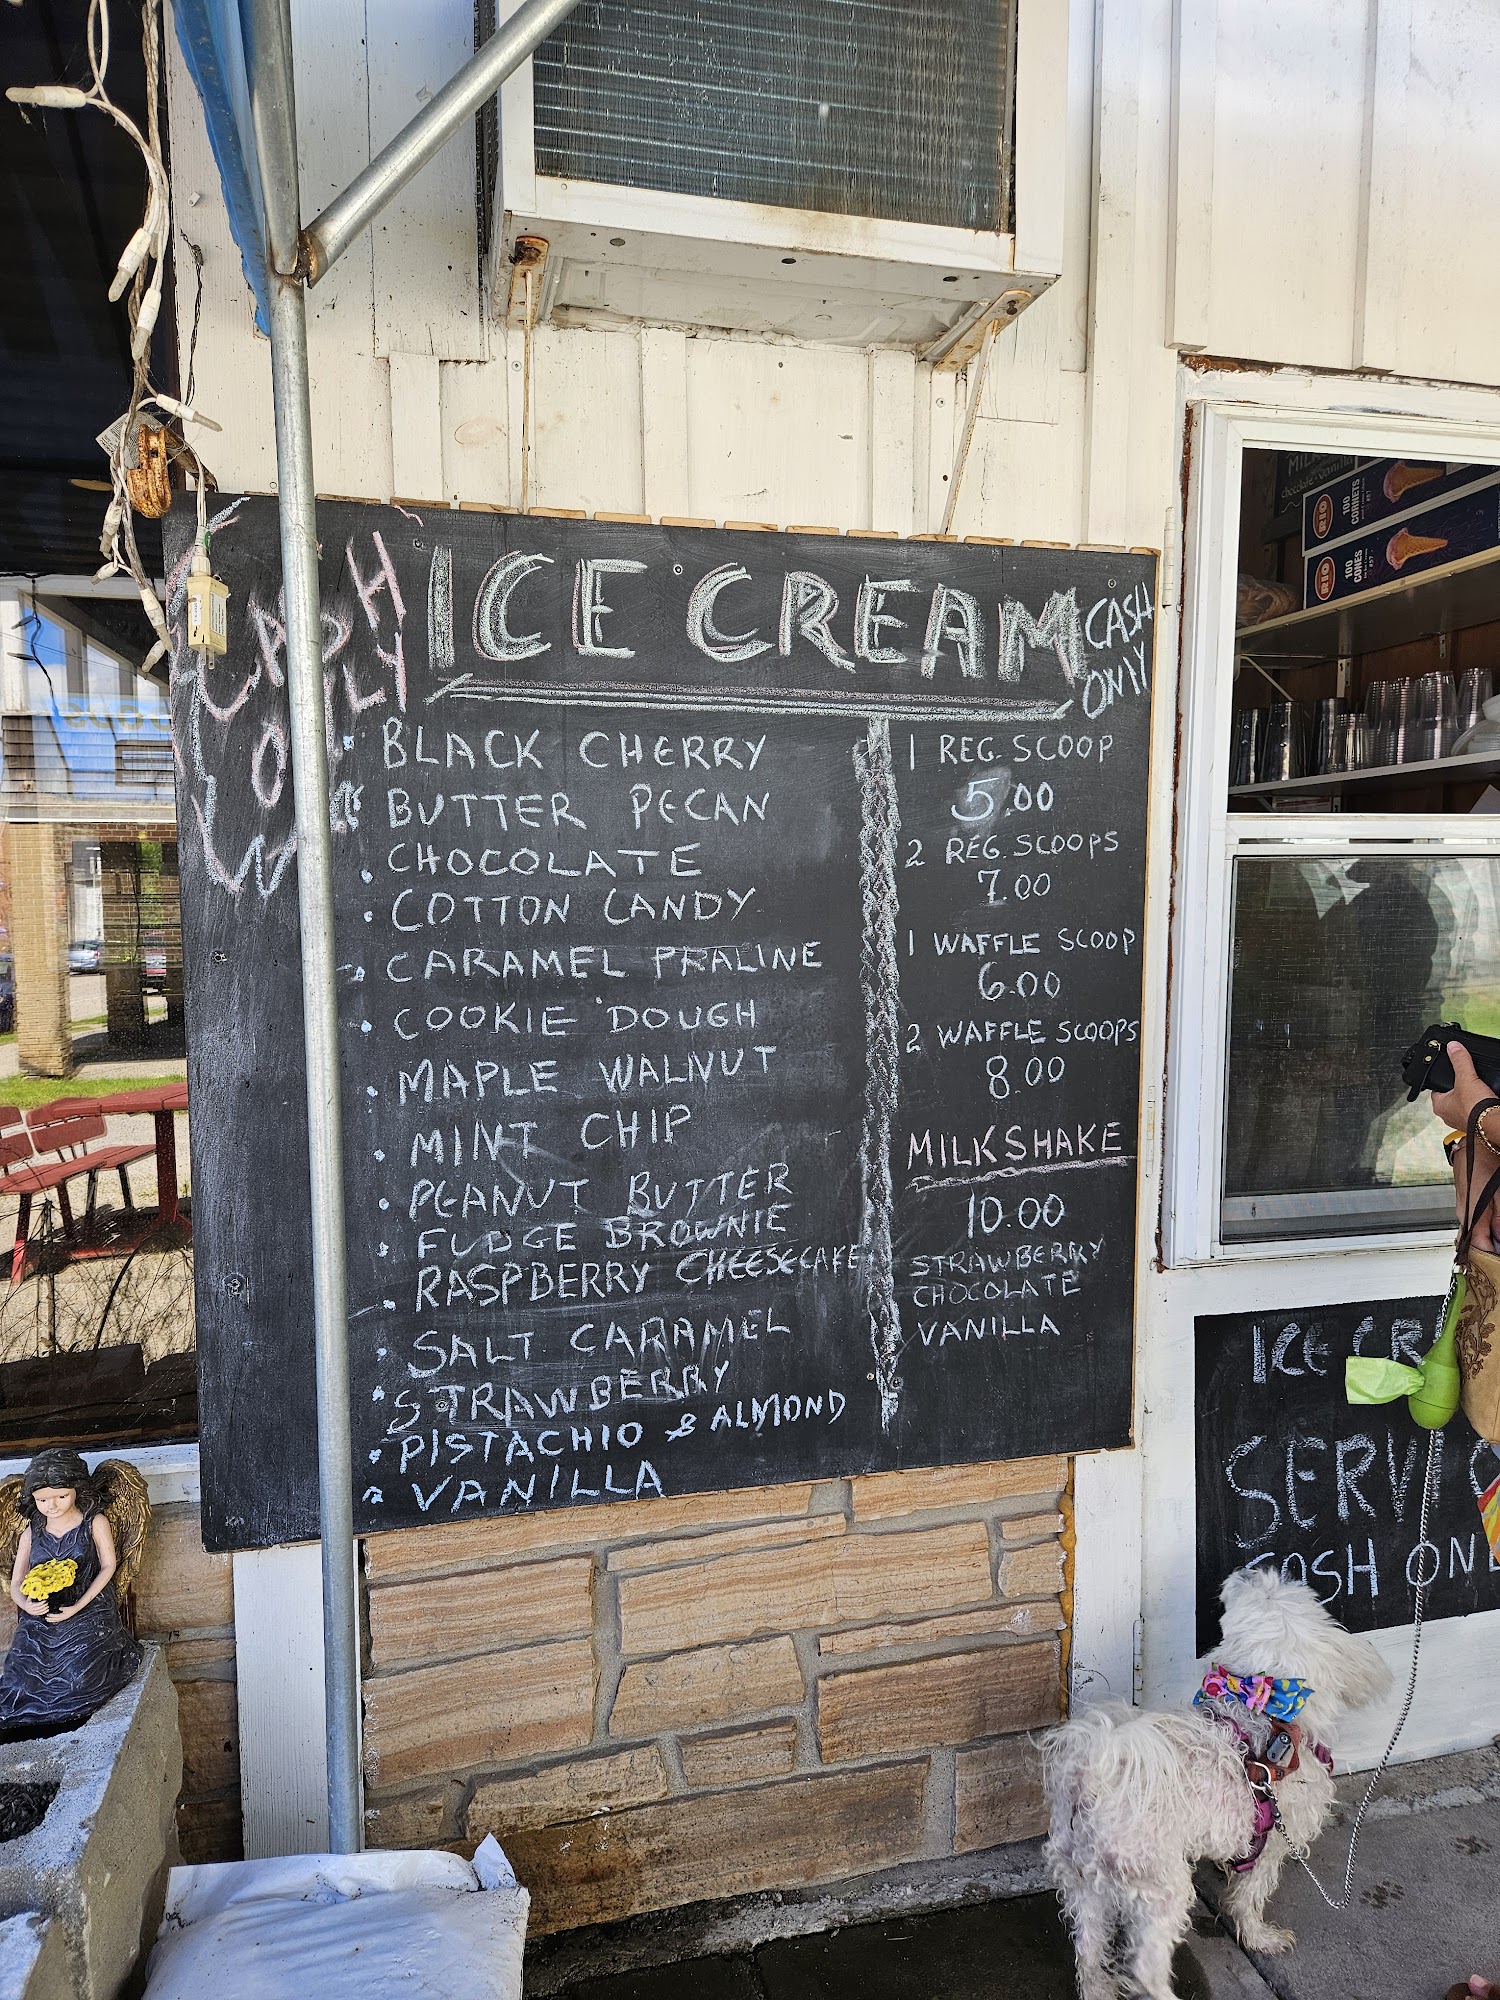 ICE CREAM
CASH
ONLY
CASH
ONLY
• BLACK CHERRY
• BUTTER PECAN
• CHOCOLATE
• COTTON CANDY
• CARAMEL PRALINE
• COOKIE DOUGH
• MAPLE WALNUT
• MINT CHIP
• PEANUT BUTTER
• FUDGE BROWNIE
RASPBERRY CHEESECAKE
• SALT CARAMEL
• STRAWBERRY
• PISTACHIO & ALMOND
• VANILLA
1 REG. SCOOP
5.00
2 REG. SCOOPS
7.00
1 WAFFLE SCOOP
6.00
2 WAFFLE SCOOPS
8.00
MILKSHAKE
10.00
STRAWBERRY
CHOCOLATE
VANILLA
chocolate · vanilla
RIO 100 CORNETS
RIO 100 CONES
ICE CR
SERVIC
COSH ONL